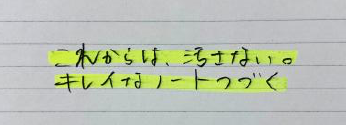 これからは、汚さない。
キレイなノートつづく